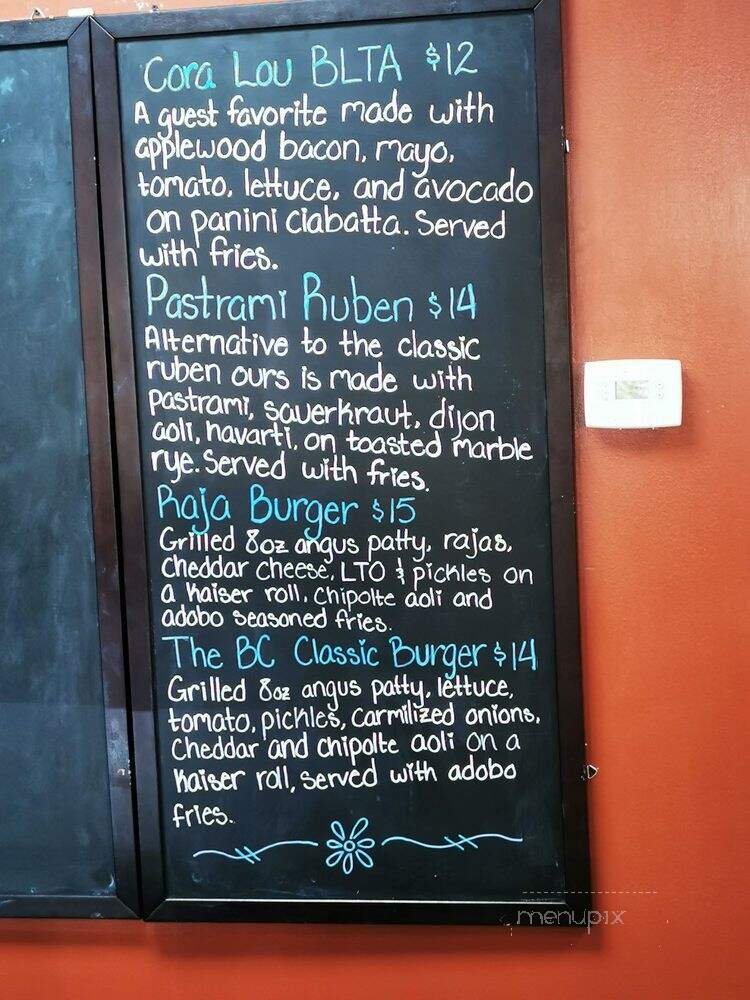 Cora Lou BLTA $12
A guest favorite made with
applewood bacon, mayo,
tomato, lettuce, and avocado
on panini ciabatta. Served
with fries.
Pastrami Ruben $14
Alternative to the classic
ruben ours is made with
pastrami, sauerkraut, dijon
aoli, havarti, on toasted marble
rye. Served with fries.
Raja Burger $15
Grilled 8oz angus patty, rajas,
Cheddar cheese, LTO & pickles on
a Kaiser roll, chipolte aoli and
adobo seasoned fries.
The BC Classic Burger $14
Grilled 8oz angus patty, lettuce,
tomato, pickles, carmilized onions,
Cheddar and chipolte aoli on a
Kaiser roll, served with adobo
fries.
menupix